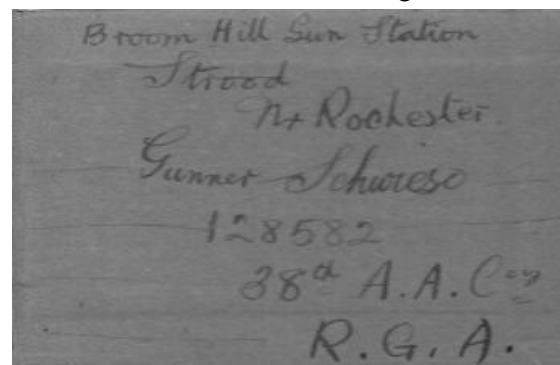 Broom Hill Gun Station
Strood
Nr Rochester.
Gunner Schwieso
128582
38th A.A. Coy
R.G.A.